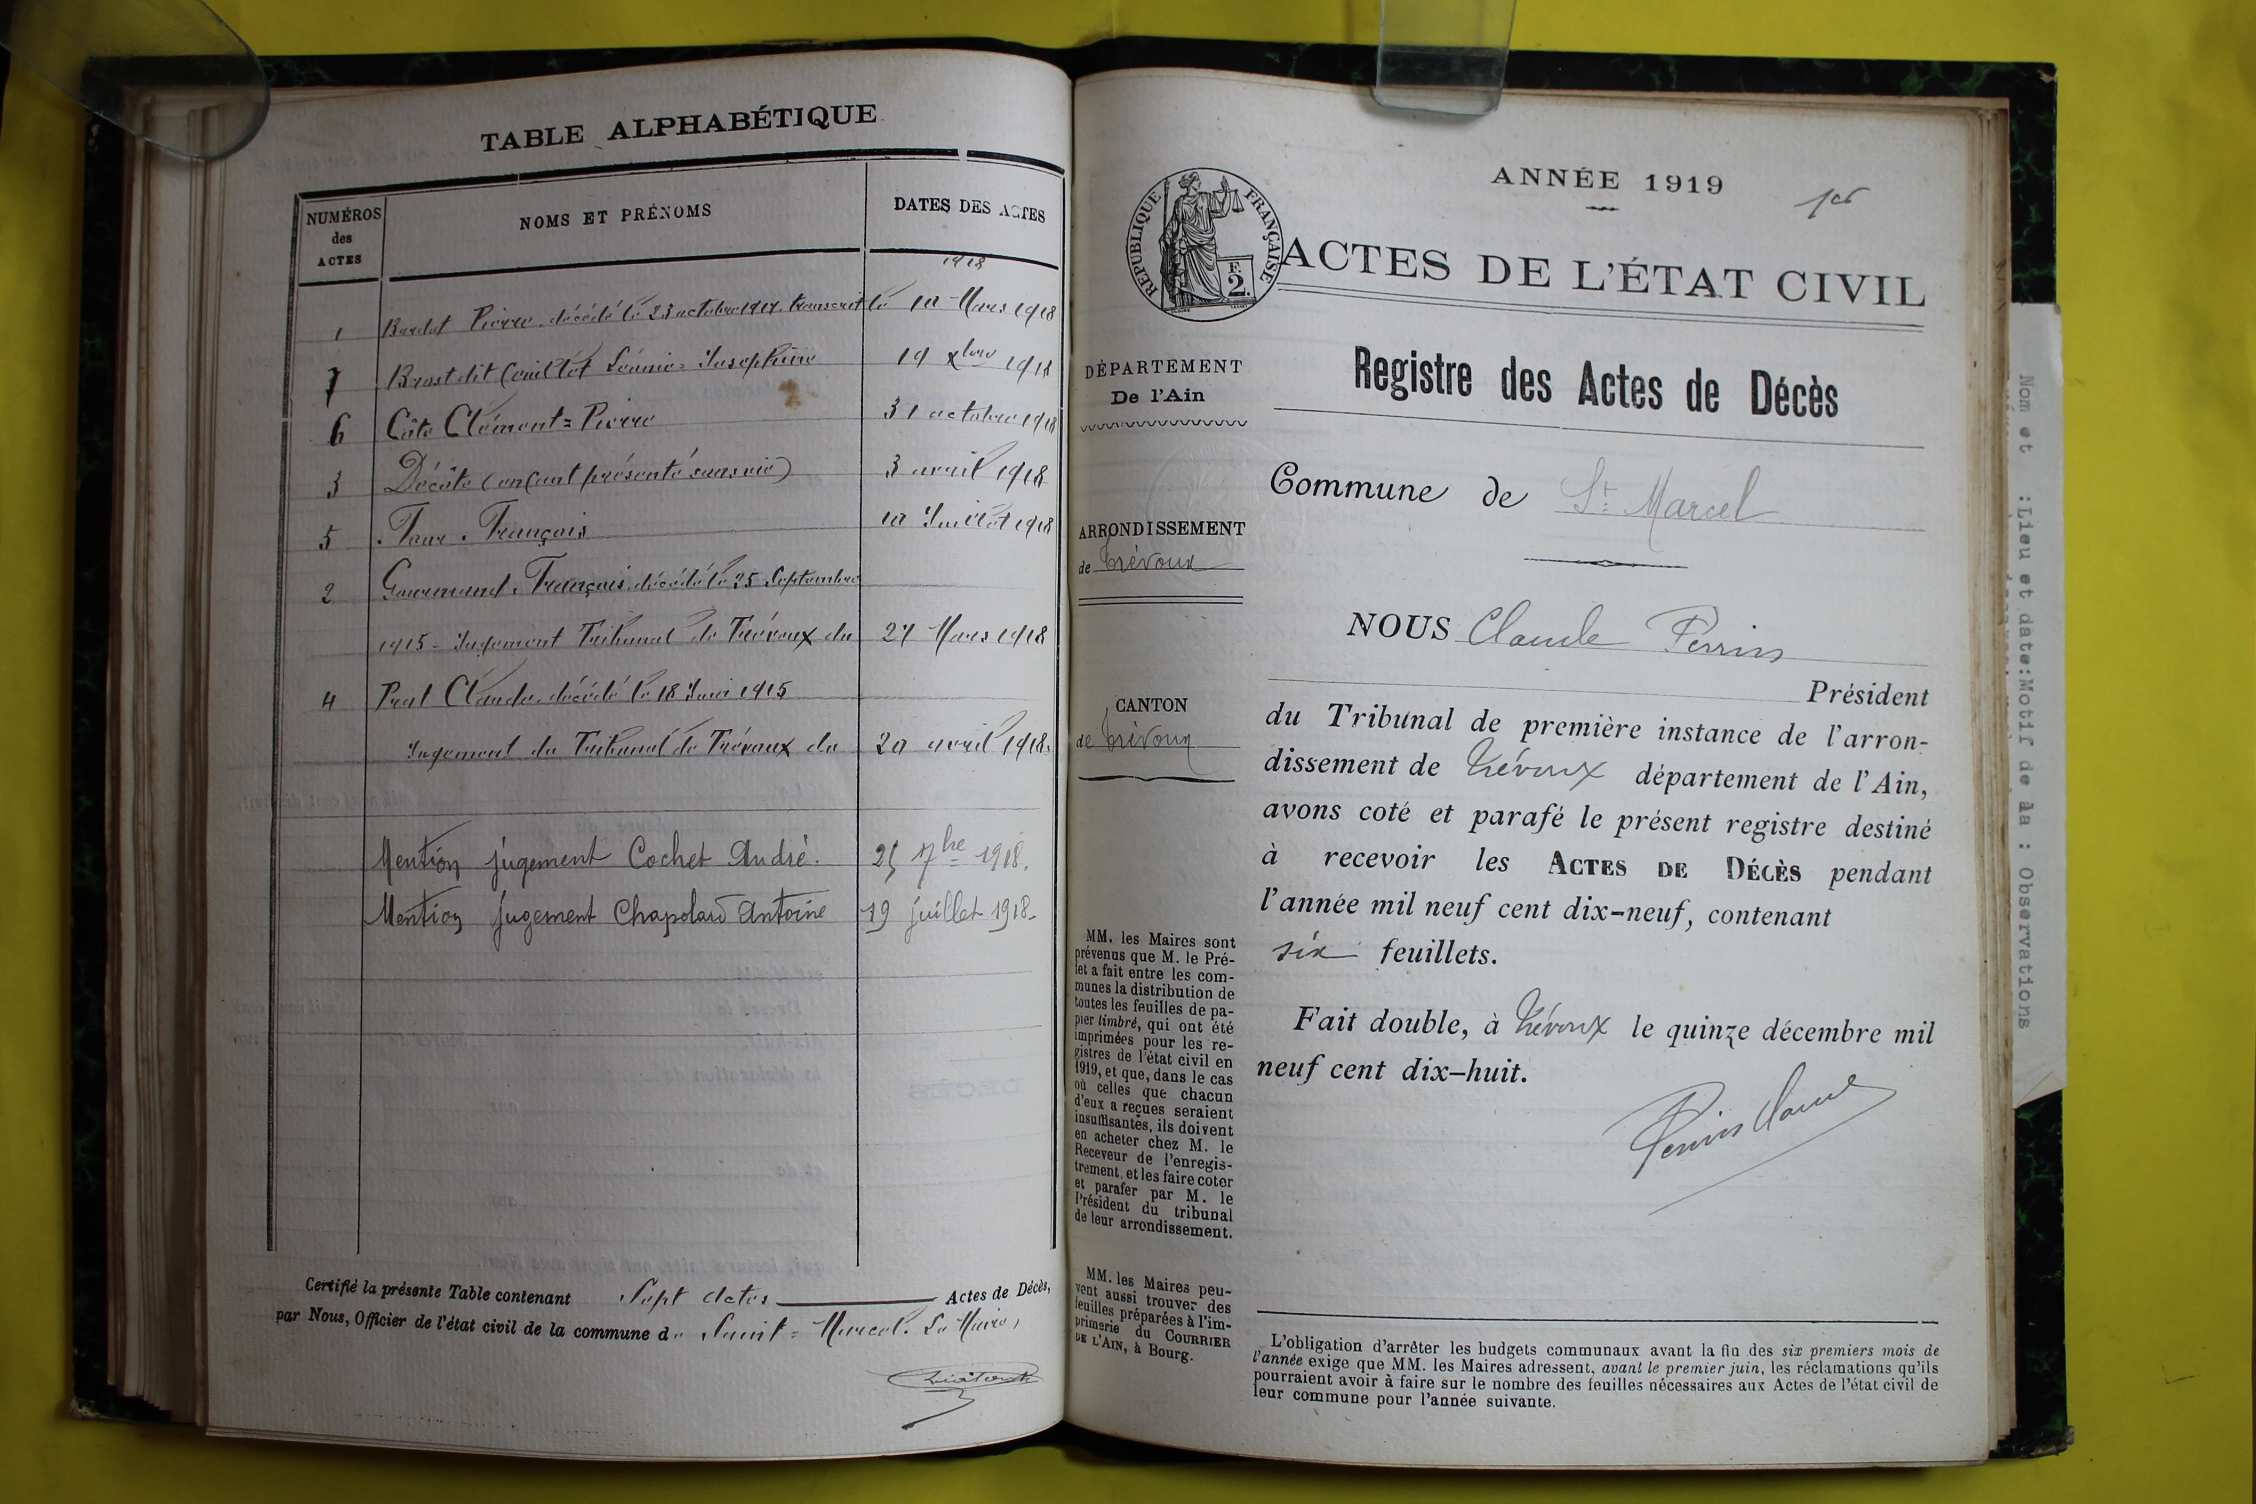 TABLE ALPHABÉTIQUE
NUMÉROS des ACTES
NOMS ET PRÉNOMS
DATES DES ACTES
1918
1 Bardet Pierre décédé le 23 octobre 1917, transcrit le 10 Mars 1918
7 Brost dit Couillot Léonie=Josephine 19 xbre 1918
6 Côte Clément=Pierre 31 octobre 1918
3 Décôte (enfant présenté sans vie) 3 avril 1918
5 Faur François 10 Juillet 1918
2 Gourmand François décédé le 25 Septembre
1915 - Jugement Tribunal de Trévoux du 27 Mars 1918
4 Prat Claude décédé le 18 Juin 1915
Jugement du Tribunal de Trévoux du 20 avril 1918.
Mention jugement Cochet André. 25 7bre 1918.
Mention jugement Chapolard Antoine 19 juillet 1918.
Certifié la présente Table contenant Sept actes Actes de Décès,
par Nous, Officier de l'état civil de la commune de Saint=Marcel. Le Maire,
ANNÉE 1919
1er
RÉPUBLIQUE FRANÇAISE
F.
2.
ACTES DE L'ÉTAT CIVIL
DÉPARTEMENT
De l'Ain
ARRONDISSEMENT
de Trévoux
CANTON
de Trévoux
MM. les Maires sont
prévenus que M. le Pré-
fet a fait entre les com-
munes la distribution de
toutes les feuilles de pa-
pier timbré, qui ont été
imprimées pour les re-
gistres de l'état civil en
1919, et que, dans le cas
où celles que chacun
d'eux a reçues seraient
insuffisantes, ils doivent
en acheter chez M. le
Receveur de l'enregis-
trement, et les faire coter
et parafer par M. le
Président du tribunal
de leur arrondissement.
MM. les Maires peu-
vent aussi trouver des
feuilles préparées à l'im-
primerie du COURRIER
DE L'AIN, à Bourg.
Registre des Actes de Décès
Commune de St Marcel
NOUS Claude Perrin
Président
du Tribunal de première instance de l'arron-
dissement de Trévoux département de l'Ain,
avons coté et parafé le présent registre destiné
à recevoir les ACTES DE DÉCÈS pendant
l'année mil neuf cent dix-neuf, contenant
six feuillets.
Fait double, à Trévoux le quinze décembre mil
neuf cent dix-huit.
Perrin Claude
L'obligation d'arrêter les budgets communaux avant la fin des six premiers mois de
l'année exige que MM. les Maires adressent, avant le premier juin, les réclamations qu'ils
pourraient avoir à faire sur le nombre des feuilles nécessaires aux Actes de l'état civil de
leur commune pour l'année suivante.
Nom et :Lieu et date:Motif de la : Observations